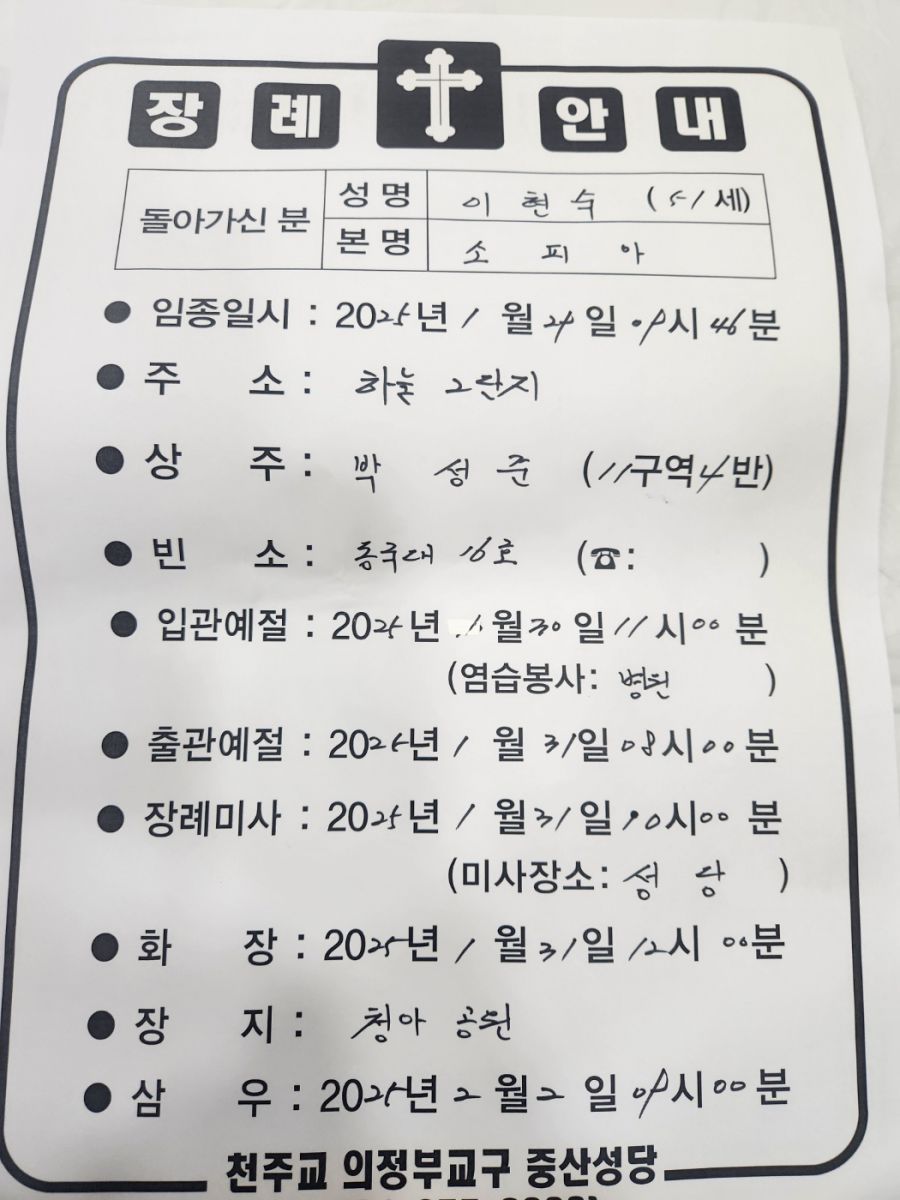 장례 안내
돌아가신 분 성명 이현숙 (51세)
본명 소피아
● 임종일시 : 2025년 1월 29일 09시 46분
● 주 소 : 하늘 2단지
● 상 주 : 박성준 (11구역 4반)
● 빈 소 : 동국대 16호 (☎: )
● 입관예절 : 2025년 1월 30일 11시 00분
(염습봉사: 병원 )
● 출관예절 : 2025년 1월 31일 08시 00분
● 장례미사 : 2025년 1월 31일 10시 00분
(미사장소: 성당 )
● 화 장 : 2025년 1월 31일 12시 00분
● 장 지 : 청아 공원
● 삼 우 : 2025년 2월 2일 09시 00분
천주교 의정부교구 중산성당